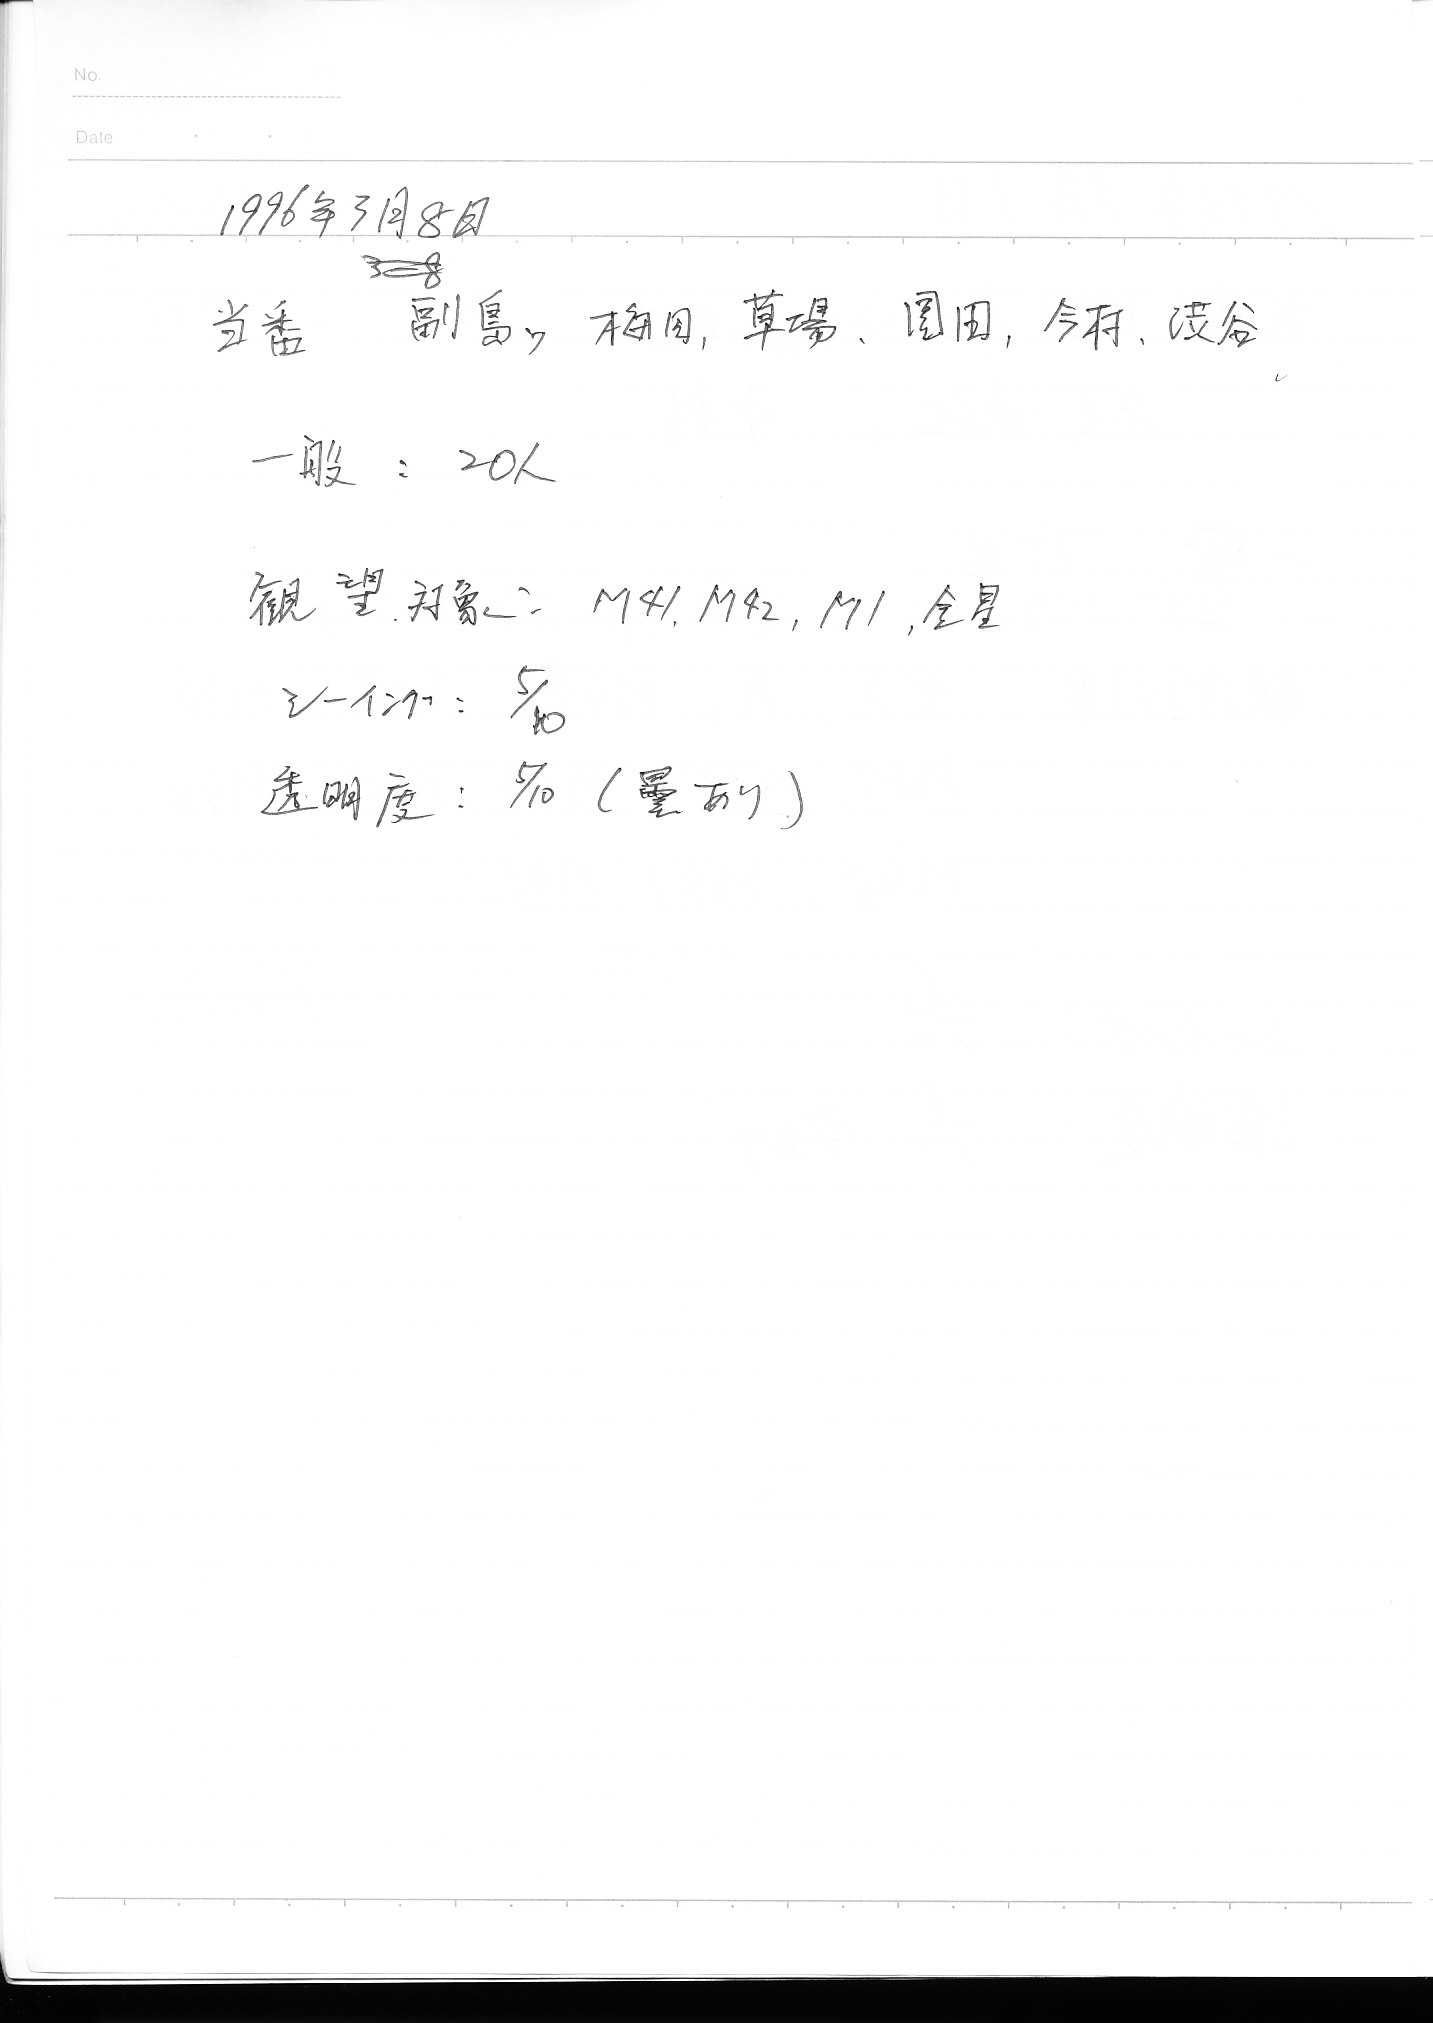 No.
Date
1996年3月8日
当番 副島、梅田, 草場、園田, 今村、渋谷
一般 : 20人
観望対象: M41, M42, M1, 金星
シーイング: 5/10
透明度: 5/10 (曇あり)